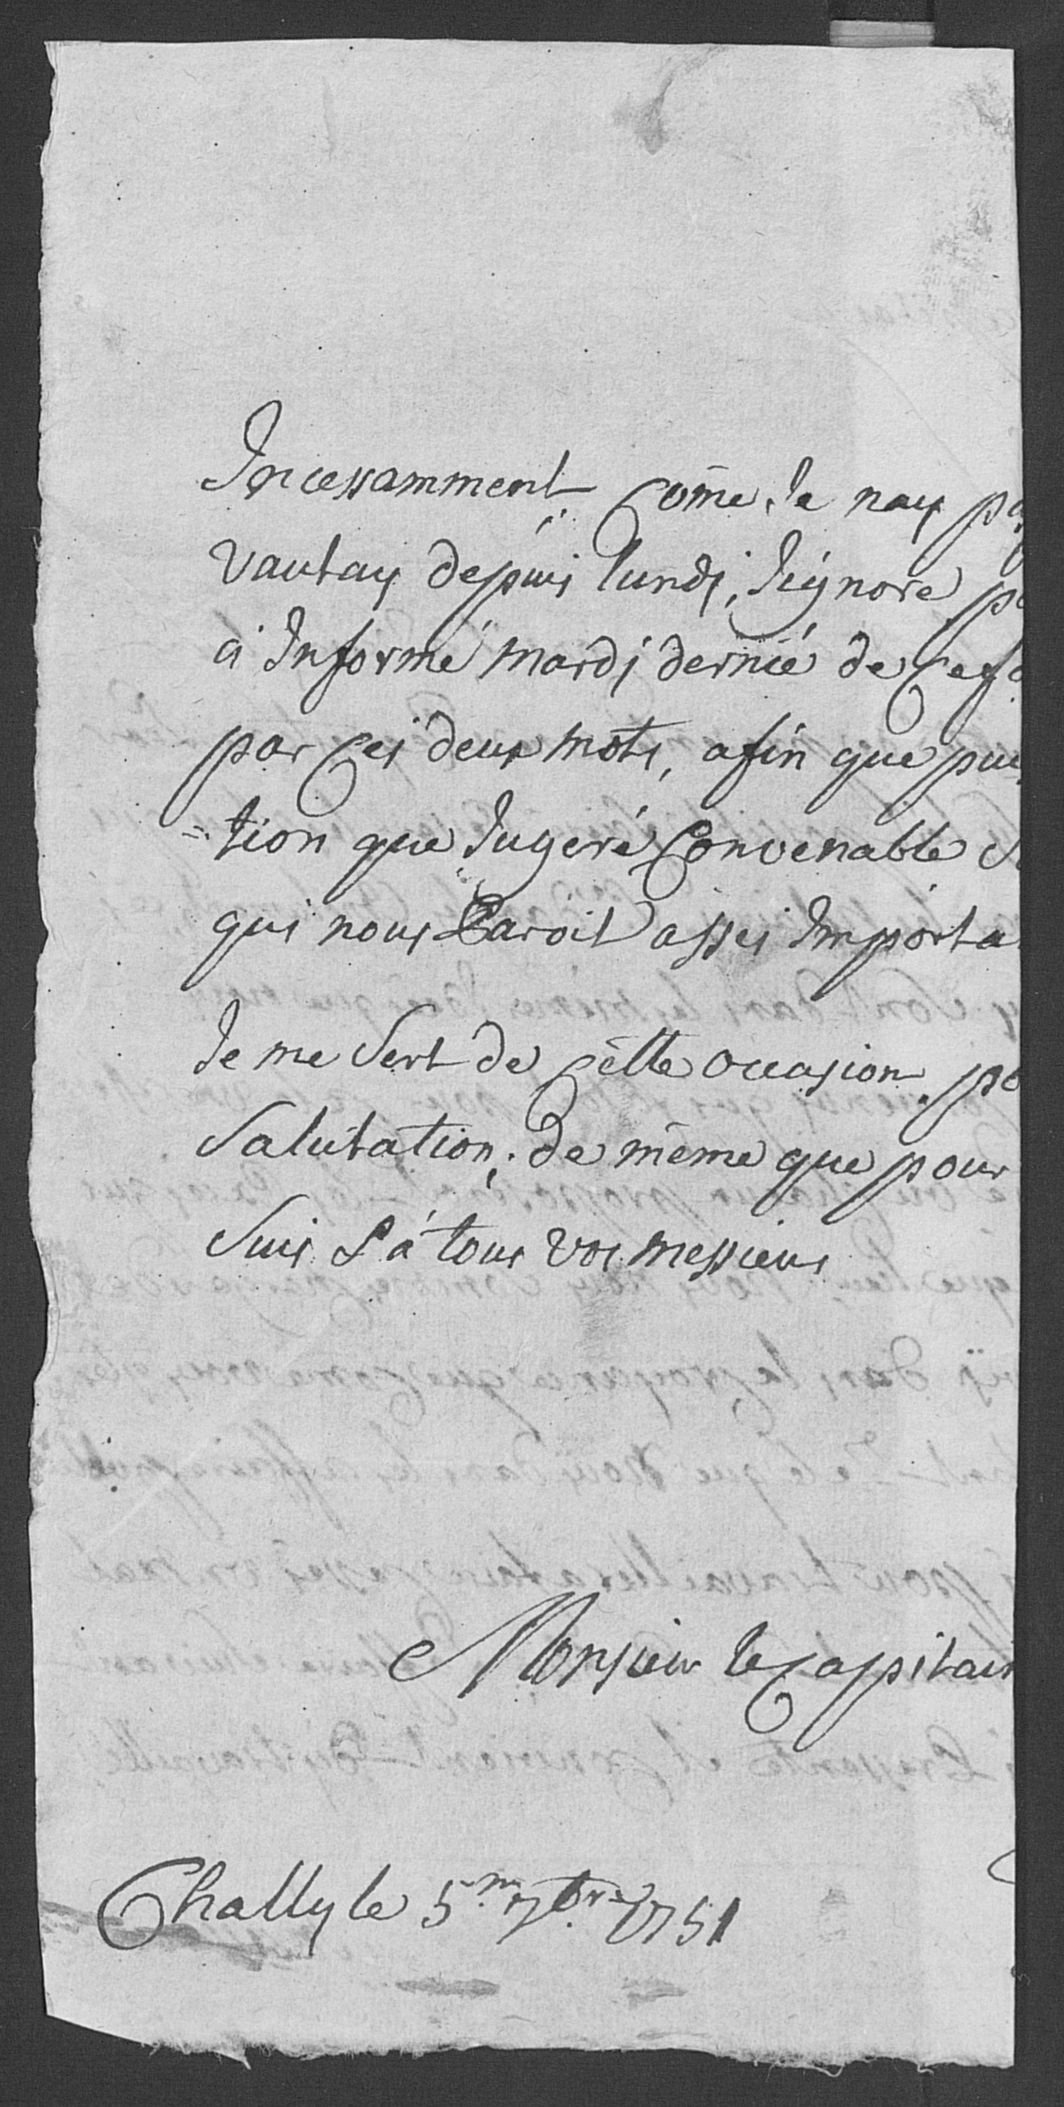 Incessamment Come Je nay pa
Vautay depuis lundj, Jignore po
a Informé mardj dernié de Ce fa
par Ces deux mots, afin que pui
=tion que Jugeré Convenable S
qui nous Paroit assés Importa
Je me Sert de Cètte occasion po
Salutation, de mème que pour
Suis & á tous vos messieurs
Monsieur le Capitai
Chally le 5.me 7bre 1751